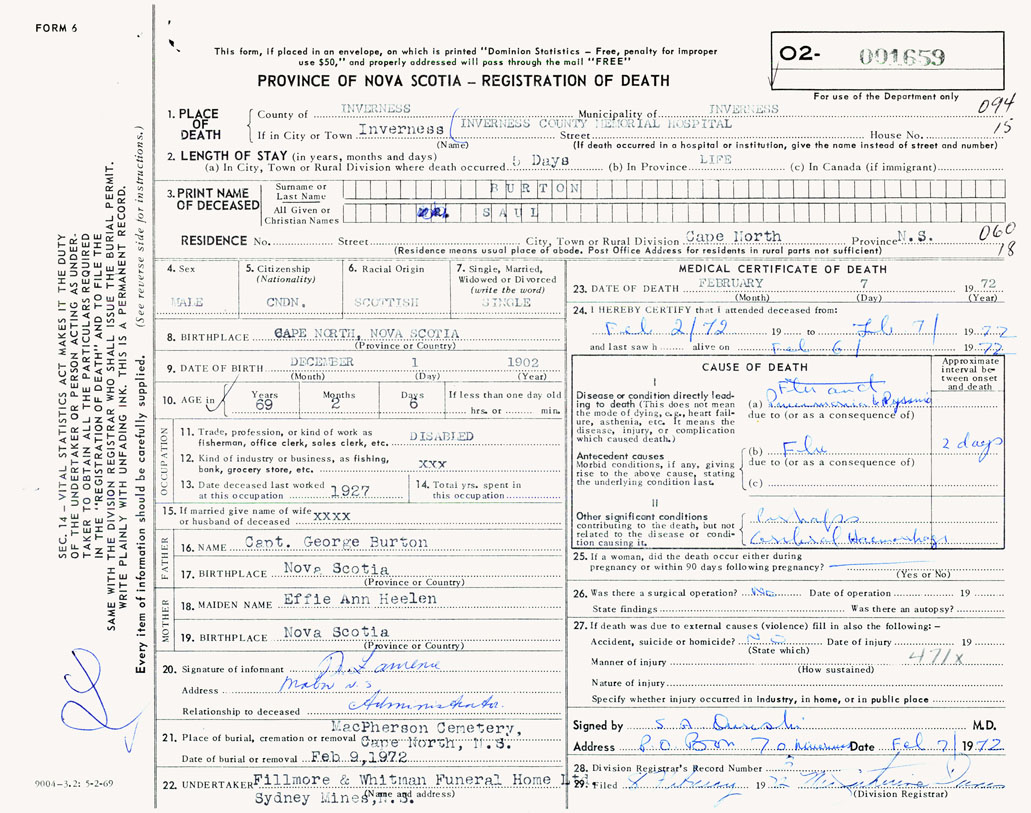 FORM 6
This form, if placed in an envelope, on which is printed "Dominion Statistics – Free, penalty for improper
use $50," and properly addressed will pass through the mail "FREE"
PROVINCE OF NOVA SCOTIA – REGISTRATION OF DEATH
O2- 001659
For use of the Department only
094
15
1. PLACE OF DEATH
County of INVERNESS Municipality of INVERNESS
If in City or Town Inverness (INVERNESS COUNTY MEMORIAL HOSPITAL Street House No.
(Name) (If death occurred in a hospital or institution, give the name instead of street and number)
2. LENGTH OF STAY (in years, months and days)
(a) In City, Town or Rural Division where death occurred 5 Days (b) In Province LIFE (c) In Canada (if immigrant)
3. PRINT NAME OF DECEASED
Surname or Last Name BURTON
All Given or Christian Names SAUL
RESIDENCE No. Street City, Town or Rural Division Cape North Province N.S.
(Residence means usual place of abode. Post Office Address for residents in rural parts not sufficient)
060
18
4. Sex
MALE
5. Citizenship
(Nationality)
CNDN.
6. Racial Origin
SCOTTISH
7. Single, Married,
Widowed or Divorced
(write the word)
SINGLE
8. BIRTHPLACE CAPE NORTH, NOVA SCOTIA
(Province or Country)
9. DATE OF BIRTH DECEMBER 1 1902
(Month) (Day) (Year)
10. AGE in
Years Months Days If less than one day old
69 2 6 hrs. or min.
OCCUPATION
11. Trade, profession, or kind of work as
fisherman, office clerk, sales clerk, etc. DISABLED
12. Kind of industry or business, as fishing,
bank, grocery store, etc. XXX
13. Date deceased last worked
at this occupation 1927
14. Total yrs. spent in
this occupation
15. If married give name of wife
or husband of deceased XXXX
FATHER
16. NAME Capt. George Burton
17. BIRTHPLACE Nova Scotia
(Province or Country)
MOTHER
18. MAIDEN NAME Effie Ann Heelen
19. BIRTHPLACE Nova Scotia
(Province or Country)
20. Signature of informant
Address Mabou N.S
Relationship to deceased Administrator
21. Place of burial, cremation or removal MacPherson Cemetery,
Cape North, N.S.
Date of burial or removal Feb 9, 1972
22. UNDERTAKER Fillmore & Whitman Funeral Home Ltd.
Sydney Mines, N.S.
(Name and address)
MEDICAL CERTIFICATE OF DEATH
23. DATE OF DEATH FEBRUARY 7 19 72
(Month) (Day) (Year)
24. I HEREBY CERTIFY that I attended deceased from:
Feb 2/72 19 to Feb 7/ 19 72
and last saw h alive on Feb 6/ 19 72
CAUSE OF DEATH
Approximate
interval be-
tween onset
and death
I
Disease or condition directly lead-
ing to death (This does not mean
the mode of dying, e.g., heart fail-
ure, asthenia, etc. It means the
disease, injury, or complication
which caused death.)
(a) Pneumonia
due to (or as a consequence of)
Antecedent causes
Morbid conditions, if any, giving
rise to the above cause, stating
the underlying condition last.
(b) Flu 2 days
due to (or as a consequence of)
(c)
II
Other significant conditions
contributing to the death, but not
related to the disease or condi-
tion causing it.
Perhaps
Cerebral Haemorrhage
25. If a woman, did the death occur either during
pregnancy or within 90 days following pregnancy?
(Yes or No)
26. Was there a surgical operation? No Date of operation 19
State findings Was there an autopsy?
27. If death was due to external causes (violence) fill in also the following:–
Accident, suicide or homicide? No Date of injury 19
(State which)
Manner of injury 471x
(How sustained)
Nature of injury
Specify whether injury occurred in industry, in home, or in public place
Signed by M.D.
Address P.O Box 70 Inverness Date Feb 7/ 1972
28. Division Registrar's Record Number
29. Filed 19
(Division Registrar)
SEC. 14 – VITAL STATISTICS ACT MAKES IT THE DUTY
OF THE UNDERTAKER OR PERSON ACTING AS UNDER-
TAKER TO OBTAIN ALL THE PARTICULARS REQUIRED
IN THE "REGISTRATION OF DEATH" AND TO FILE THE
SAME WITH THE DIVISION REGISTRAR WHO SHALL ISSUE THE BURIAL PERMIT.
WRITE PLAINLY WITH UNFADING INK. THIS IS A PERMANENT RECORD.
Every item of information should be carefully supplied. (See reverse side for instructions.)
9004–3.2: 5-2-69